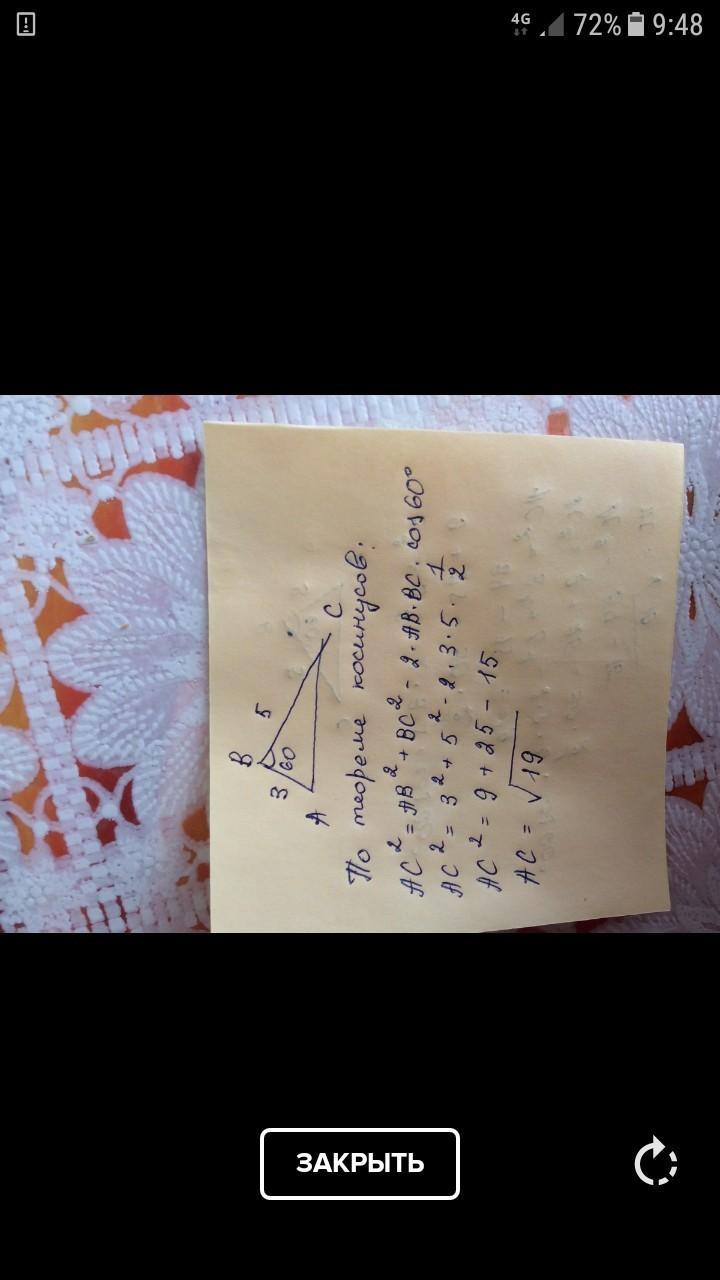 4G 72% 9:48
B
5
3
60
A
C
По теореме косинусов:
AC² = AB² + BC² - 2·AB·BC·cos60°
AC² = 3² + 5² - 2·3·5·1/2
AC² = 9 + 25 - 15
AC = √19
ЗАКРЫТЬ